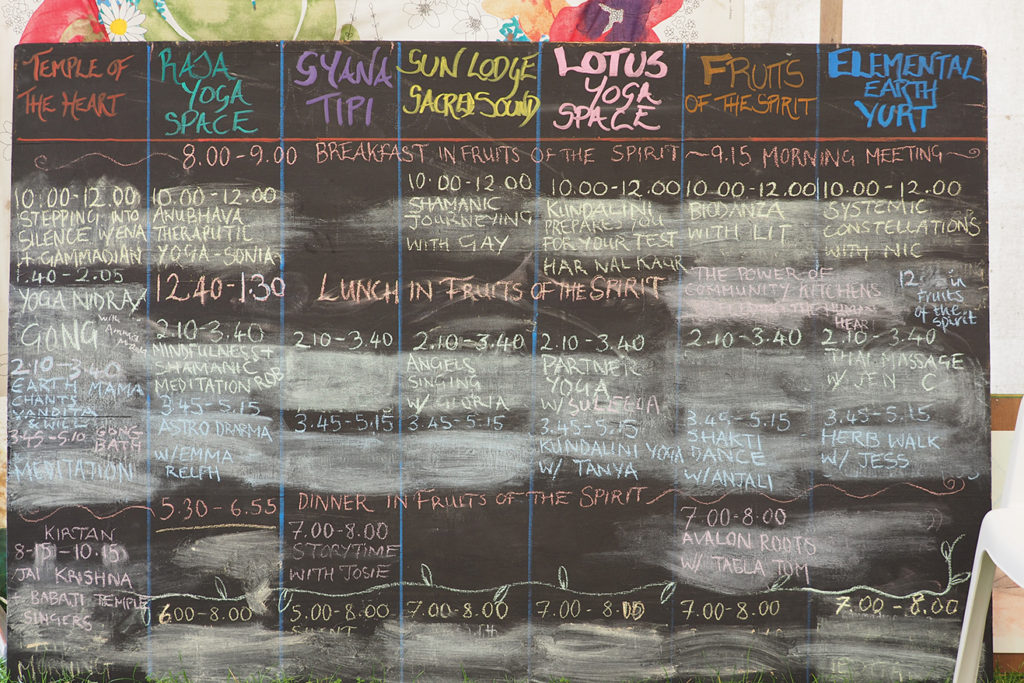 TEMPLE OF
THE HEART
RAJA
YOGA
SPACE
GYANA
TIPI
SUN LODGE
SACRED SOUND
LOTUS
YOGA
SPACE
FRUITS
OF THE SPIRIT
ELEMENTAL
EARTH
YURT
8.00-9.00 BREAKFAST IN FRUITS OF THE SPIRIT ~9.15 MORNING MEETING~
10.00-12.00
STEPPING INTO
SILENCE W/ENA
+ GAMMADIAN
1.40-2.05
YOGA NIDRA/
GONG
2.10-3.40
EARTH MAMA
CHANTS
VANDITA
& WILL
3.45-5.10 GONG
BATH
MEDITATION
10.00-12.00
ANUBHAVA
THERAPUTIC
YOGA-SONIA
12.40-1.30 LUNCH IN FRUITS OF THE SPIRIT
2.10-3.40
MINDFULNESS+
SHAMANIC
MEDITATION ROB
3.45-5.15
ASTRO DHARMA
W/EMMA
RELPH
2.10-3.40
3.45-5.15
10.00-12.00
SHAMANIC
JOURNEYING
WITH GAY
2.10-3.40
ANGELS
SINGING
W/ GLORIA
3.45-5.15
10.00-12.00
KUNDALINI
PREPARES YOU
FOR YOUR TEST
HAR NAL KAUR
2.10-3.40
PARTNER
YOGA
W/
3.45-5.15
KUNDALINI YOGA
W/ TANYA
10.00-12.00
BIODANZA
WITH LIT
THE POWER OF
COMMUNITY KITCHENS
HEART
2.10-3.40
3.45-5.15
SHAKTI
DANCE
W/ANJALI
10.00-12.00
SYSTEMIC
CONSTELLATIONS
WITH NIC
12 in
Fruits
of the
Spirit
2.10-3.40
THAI MASSAGE
W/ JEN C
3.45-5.15
HERB WALK
W/ JESS
5.30-6.55 DINNER IN FRUITS OF THE SPIRIT
KIRTAN
8-15-10.15
JAI KRISHNA
+ BABAJI TEMPLE
SINGERS
MORNING
6.00-8.00
7.00-8.00
STORYTIME
WITH JOSIE
5.00-8.00
SILENT
7.00-8.00
7.00-8.00
7.00-8.00
AVALON ROOTS
W/ TABLA TOM
7.00-8.00
7.00-8.00